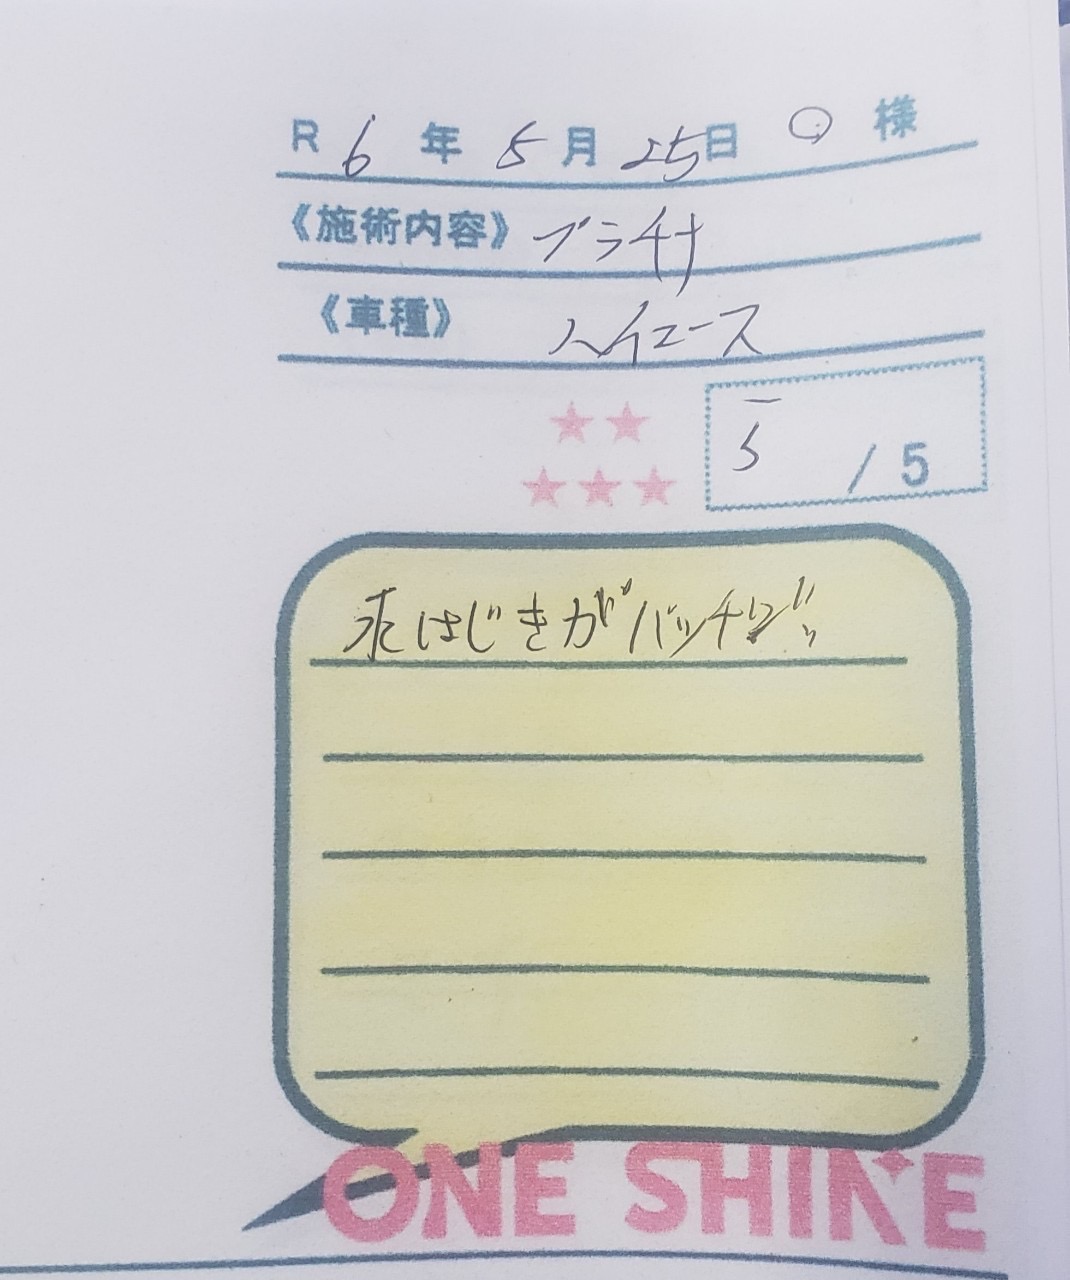 R 6 年 5 月 25 日 〇 様
《施術内容》 プラチナ
《車種》 ハイエース
★★
★★★
5 / 5
水はじきがバッチリ!!
ONE SHINE